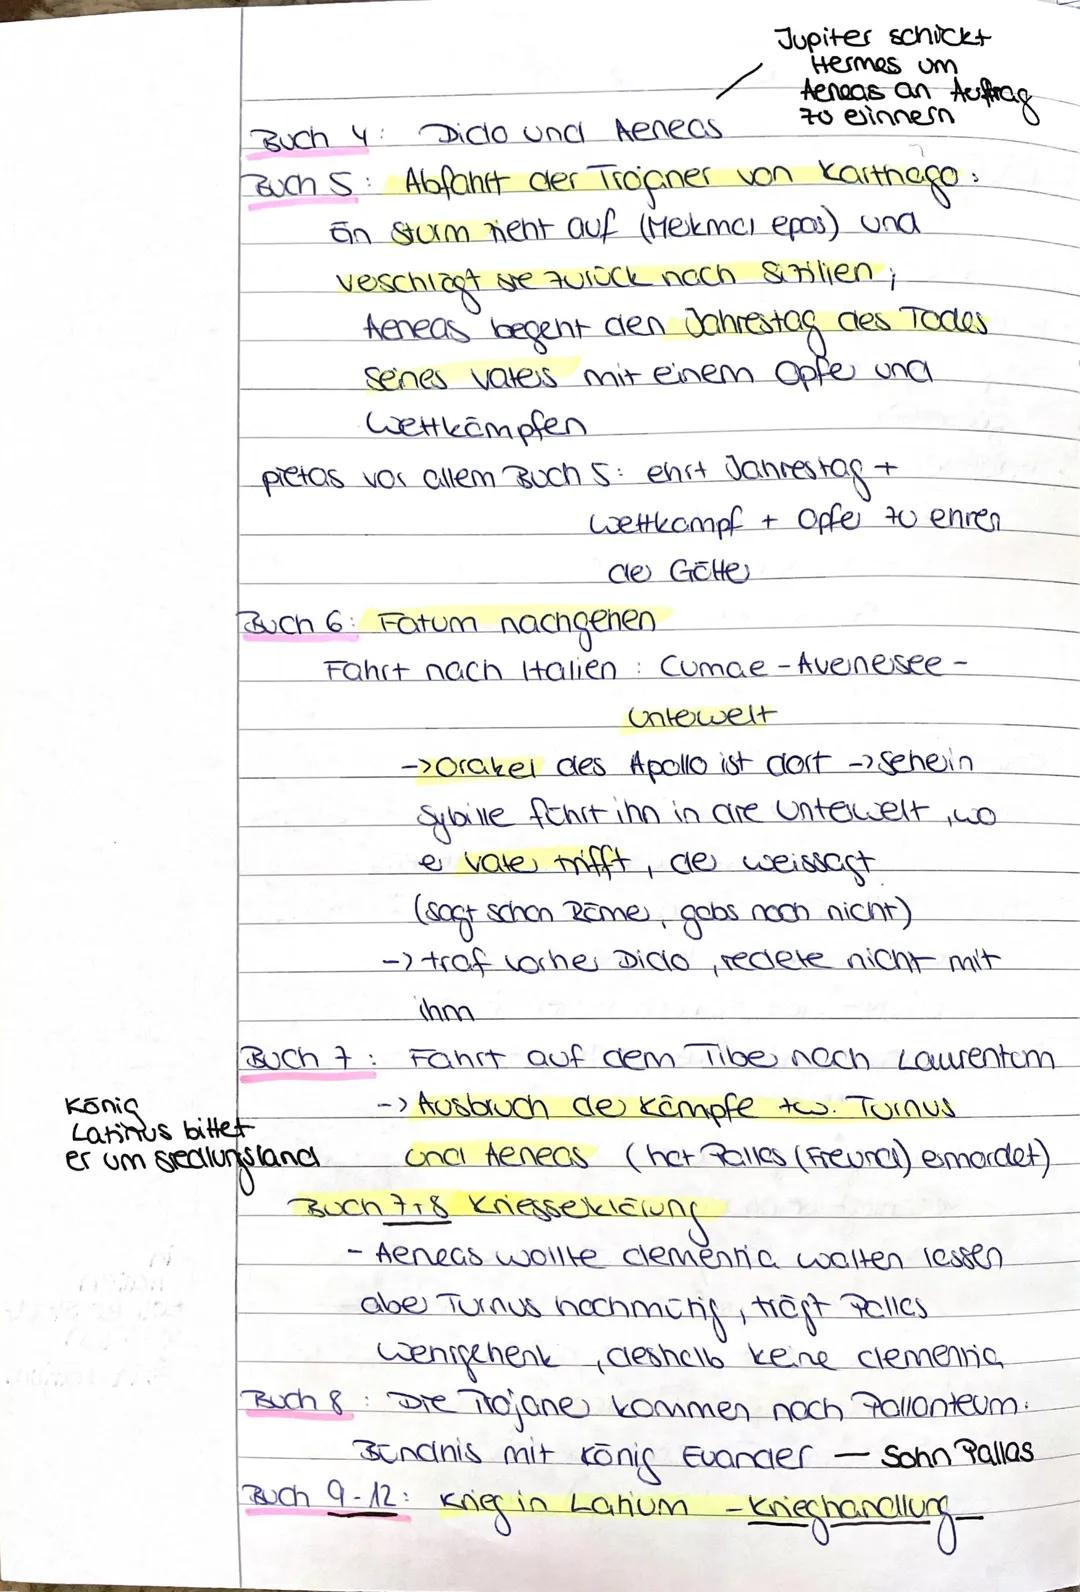 Jupiter schickt
Hermes um
Aeneas an Auftrag
zu erinnern
Buch 4: Dido und Aeneas
Buch 5: Abfahrt der Trojaner von Karthago:
Ein Sturm zieht auf (Merkmal epos) und
verschlägt sie zurück nach Sizilien;
Aeneas begeht den Jahrestag des Todes
seines Vaters mit einem Opfer und
Wettkämpfen
pietas vor allem Buch 5: ehrt Jahrestag +
Wettkampf + Opfer zu ehren
der Götter
Buch 6: Fatum nachgehen
Fahrt nach Italien: Cumae - Avernersee -
Unterwelt
-> Orakel des Apollo ist dort -> Seherin
Sybille führt ihn in die Unterwelt, wo
er Vater trifft, der weissagt
(sagt schon Römer, gabs noch nicht)
-> traf vorher Dido, redete nicht mit
ihm
Buch 7: Fahrt auf dem Tiber nach Laurentum
-> Ausbruch der Kämpfe zw. Turnus
und Aeneas (hat Pallas (Freund) ermordet)
König
Latinus bittet
er um Siedlungsland
Buch 7+8 Kriegserklärung
- Aeneas wollte clementia walten lassen
aber Turnus hochmütig, trägt Pallas
Wehrgehenk, deshalb keine clementia
Buch 8: Die Trojaner kommen nach Pallanteum.
Bündnis mit König Euander - Sohn Pallas
Buch 9-12: Krieg in Latium - Krieghandlung